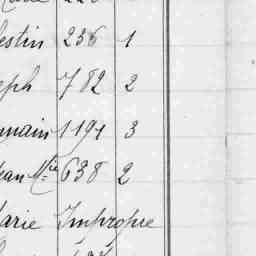 estin 236 1
eph 782 2
main 1194 3
ean Mie 638 2
arie Impropre